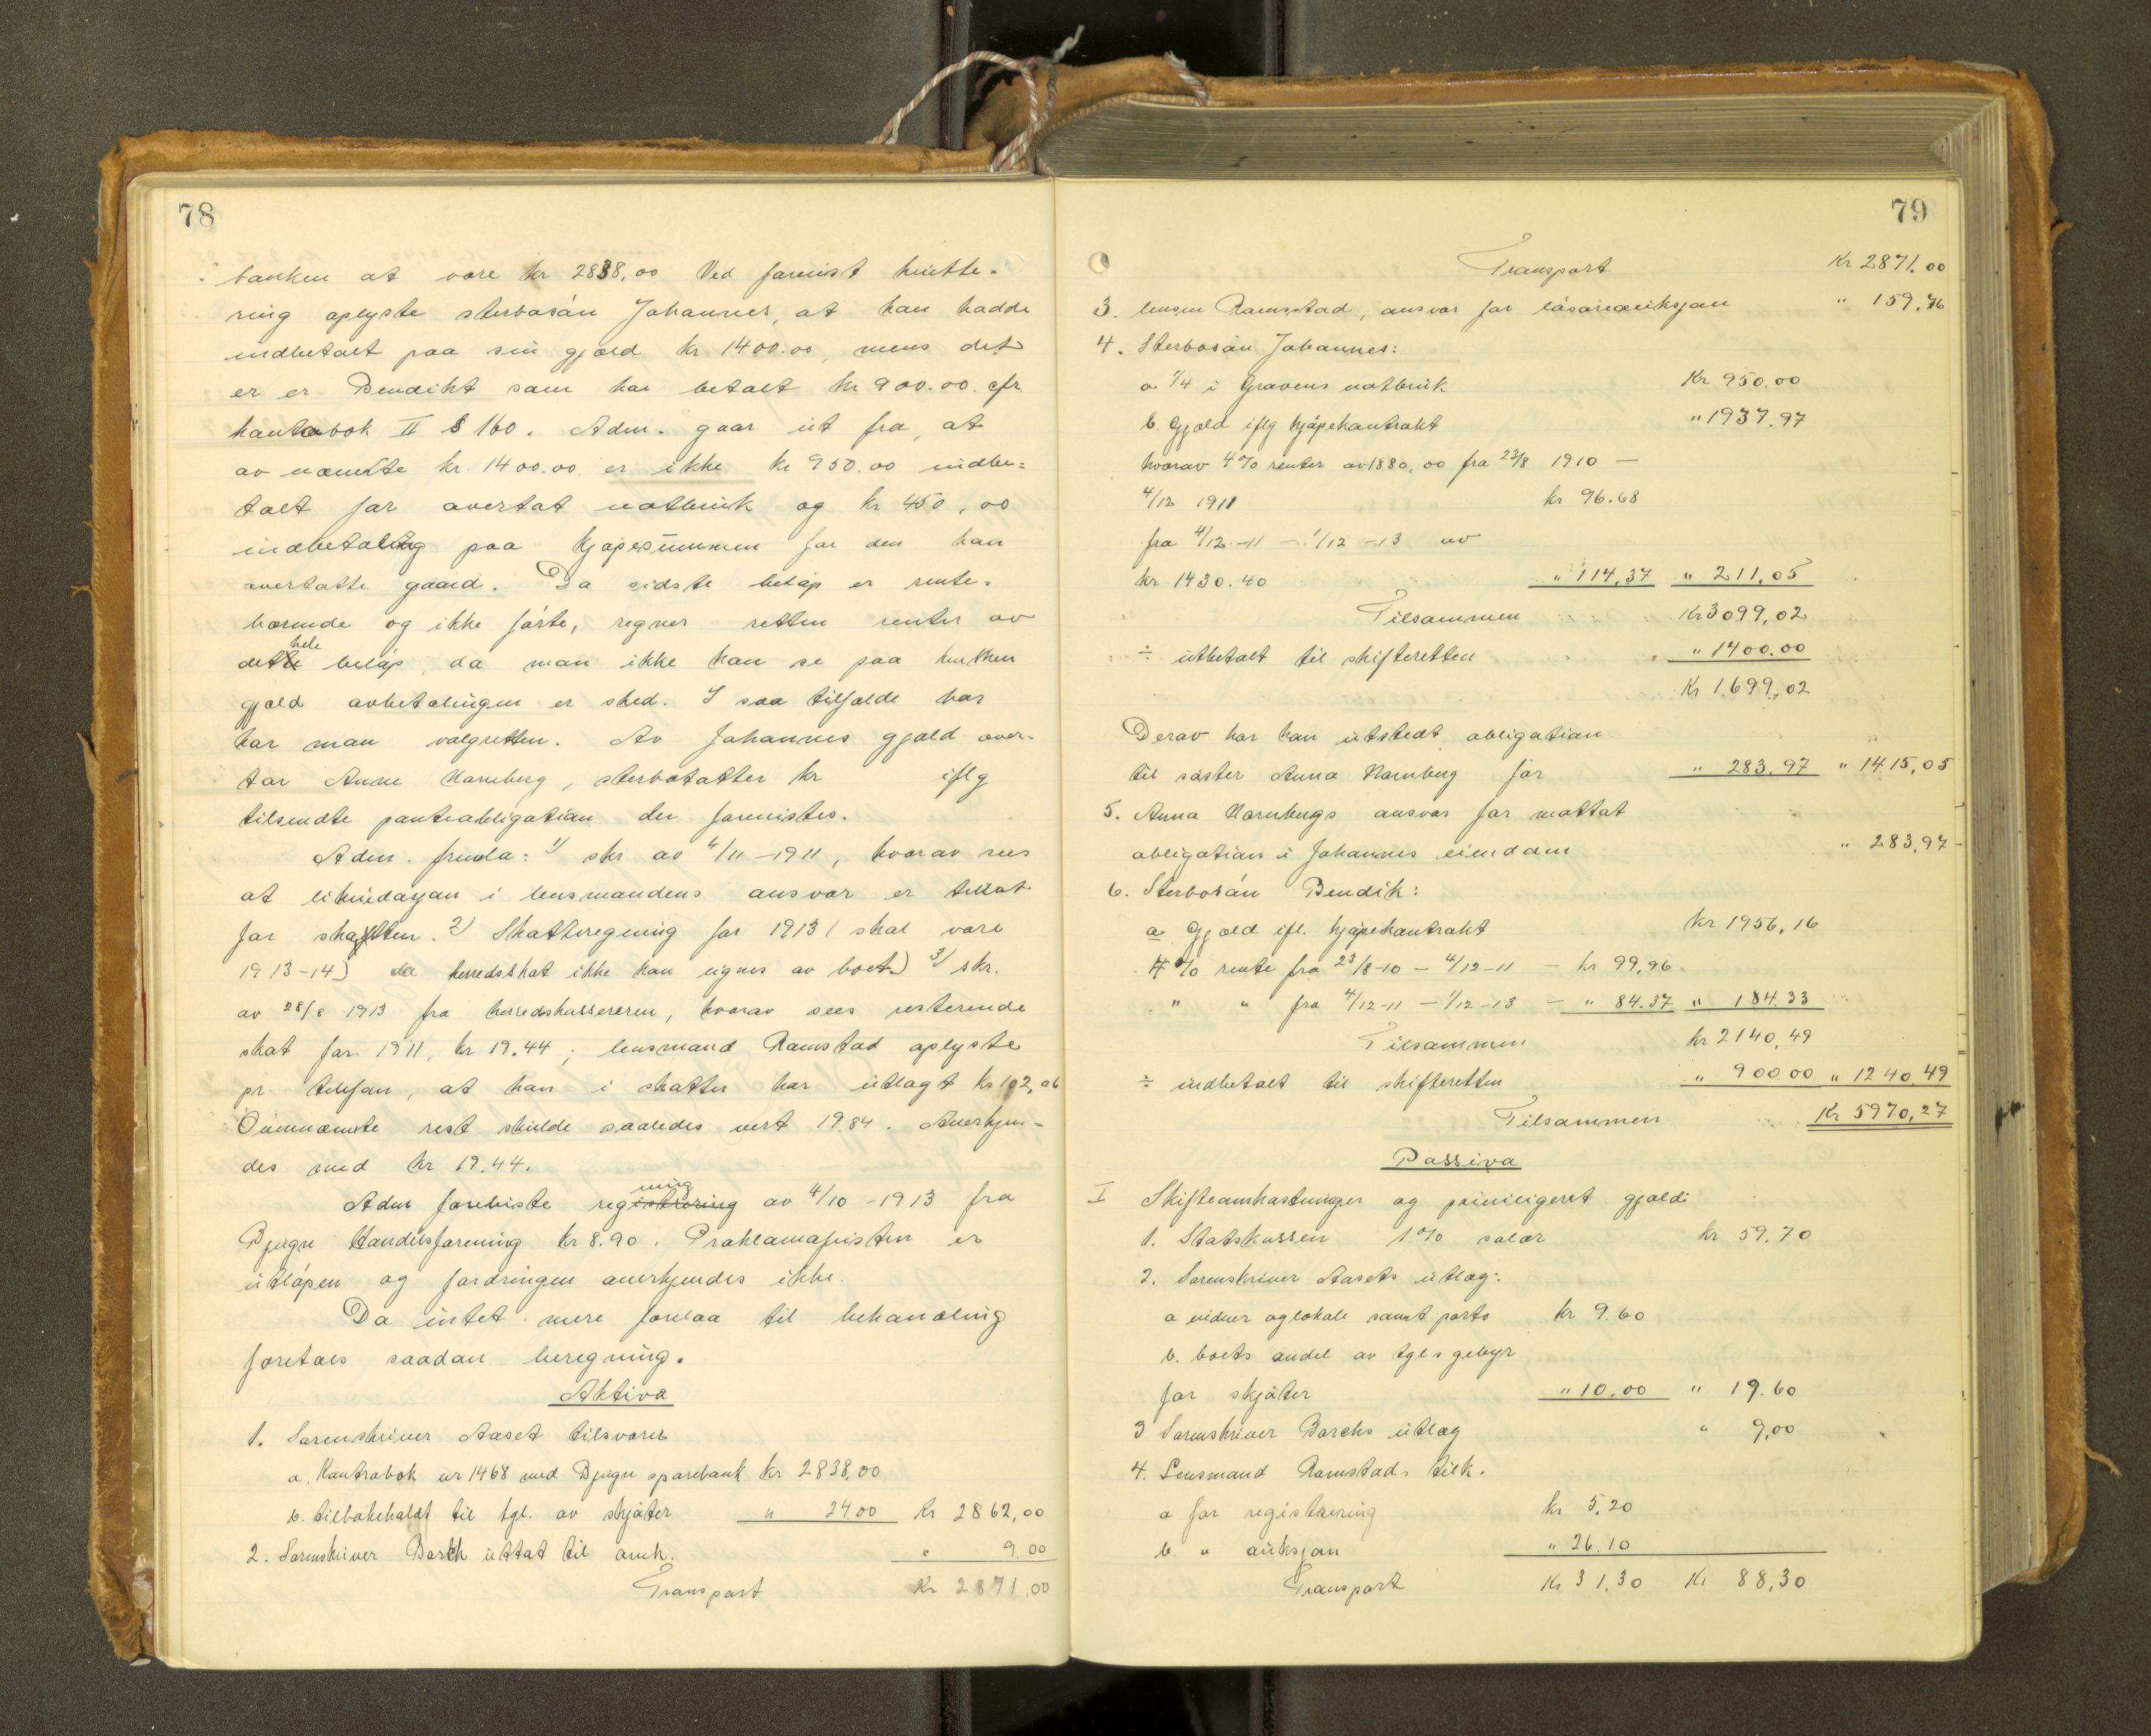 78
banken at være kr 2838,00 Ved forrige hentte-
ring oplyste sterbosøn Johannes, at han hadde
indbetalt paa sin gjæld kr 1400.00, mens det
er er Bendikt som har betalt kr 900.00. cfr.
kontobok II § 160. Adm. gaar ut fra, at
av nævnte kr. 1400.00 er ikke kr 950.00 indbe=
talt for overtat notbruk og kr 450,00
indbetaling paa kjøpesummen for den han
overtatte gaard. Da sidste beløp er rente-
bærende og ikke første, regner retten renter av
dette hele beløp, da man ikke kan se paa hvilken
gjæld avbetalingen er sked. I saa tilfælde har
har man valgretten. Av Johannes gjæld over-
tar Anne Hornberg, sterbodatter kr iflg
tilsendte panteobligation der forevistes.
Adm. fremla: 1) skr av 4/11-1911, hvorav sees
at likvidasjon i lensmandens ansvar er tillat
for skatten. 2) Skatteregning for 1913 (skal være
1913-14) da herredsskat ikke kan lignes av boet.) 3) skr.
av 28/8 1913 fra herredskassereren, hvorav sees resterende
skat for 1911, kr 19.44; lensmand Ramstad oplyste
pr telefon, at han i skatter har utlagt kr 102,06
Ovennævnte rest skulde saaledes vært 19.84. Anerkjen-
des med kr 19.44.
Adm foreviste registrering ning av 4/10-1913 fra
Bjugn Handelsforening kr 8.90. Proklamafristen er
utløpen og fordringen anerkjendes ikke.
Da intet mere forelaa til behandling
foretaes saadan beregning.
Aktiva
1. Sorenskriver Aaset tilsvarer
a. Kontrabok nr 1468 med Bjugn sparebank kr 2838,00
b. tilbakeholdt til tgl. av skjøter " 24 00 kr 2862,00
2. Sorenskriver Barch uttat til omk. " 9.00
Transport Kr 2871,00
79
Transport Kr 2871.00
3. lensm Ramstad, ansvar for løsøreauksjon " 159.76
4. Sterbosøn Johannes:
a 1/4 i Gravens notbruk Kr 950.00
b. Gjæld iflg kjøpekontrakt " 1937.97
hvorav 4% renter av 1880,00 fra 23/8 1910 —
4/12 1911 kr 96.68
fra 4/12-11 – 1/12-13 av
kr 1430.40 " 114,37 " 211,05
Tilsammen Kr 3099,02
÷ utbetalt til skifteretten " 1400.00
Kr 1.699,02
Derav har han utstedt obligation
til søster Anna Hornberg for " 283,97 " 1415,05
5. Anna Hornbergs ansvar for mottat
obligation i Johannes eiendom " 283,97
6. Sterbosøn Bendik:
a Gjæld ifl. kjøpekontrakt Kr 1956,16
4% rente fra 23/8-10 – 4/12-11 – kr 99,96
" " fra 4/12-11 – 1/12-13 – " 84.37 " 184.33
Tilsammen Kr 2140,49
÷ indbetalt til skifteretten " 900.00 " 1240,49
Tilsammen Kr 5970,27
Passiva
I Skifteomkostninger og priviligeret gjæld:
1. Statskassen 1% salær kr 59.70
2. Sorenskriver Aasets utlæg:
a vidner og lokale samt porto kr 9.60
b. boets andel av tgls gebyr
for skjøter " 10.00 " 19.60
3 Sorenskriver Barchs utlæg " 9,00
4. Lensmand Ramstads tilk.
a for registrering kr 5,20
b. " auksjon " 26.10
Transport Kr 31.30 Kr 88,30